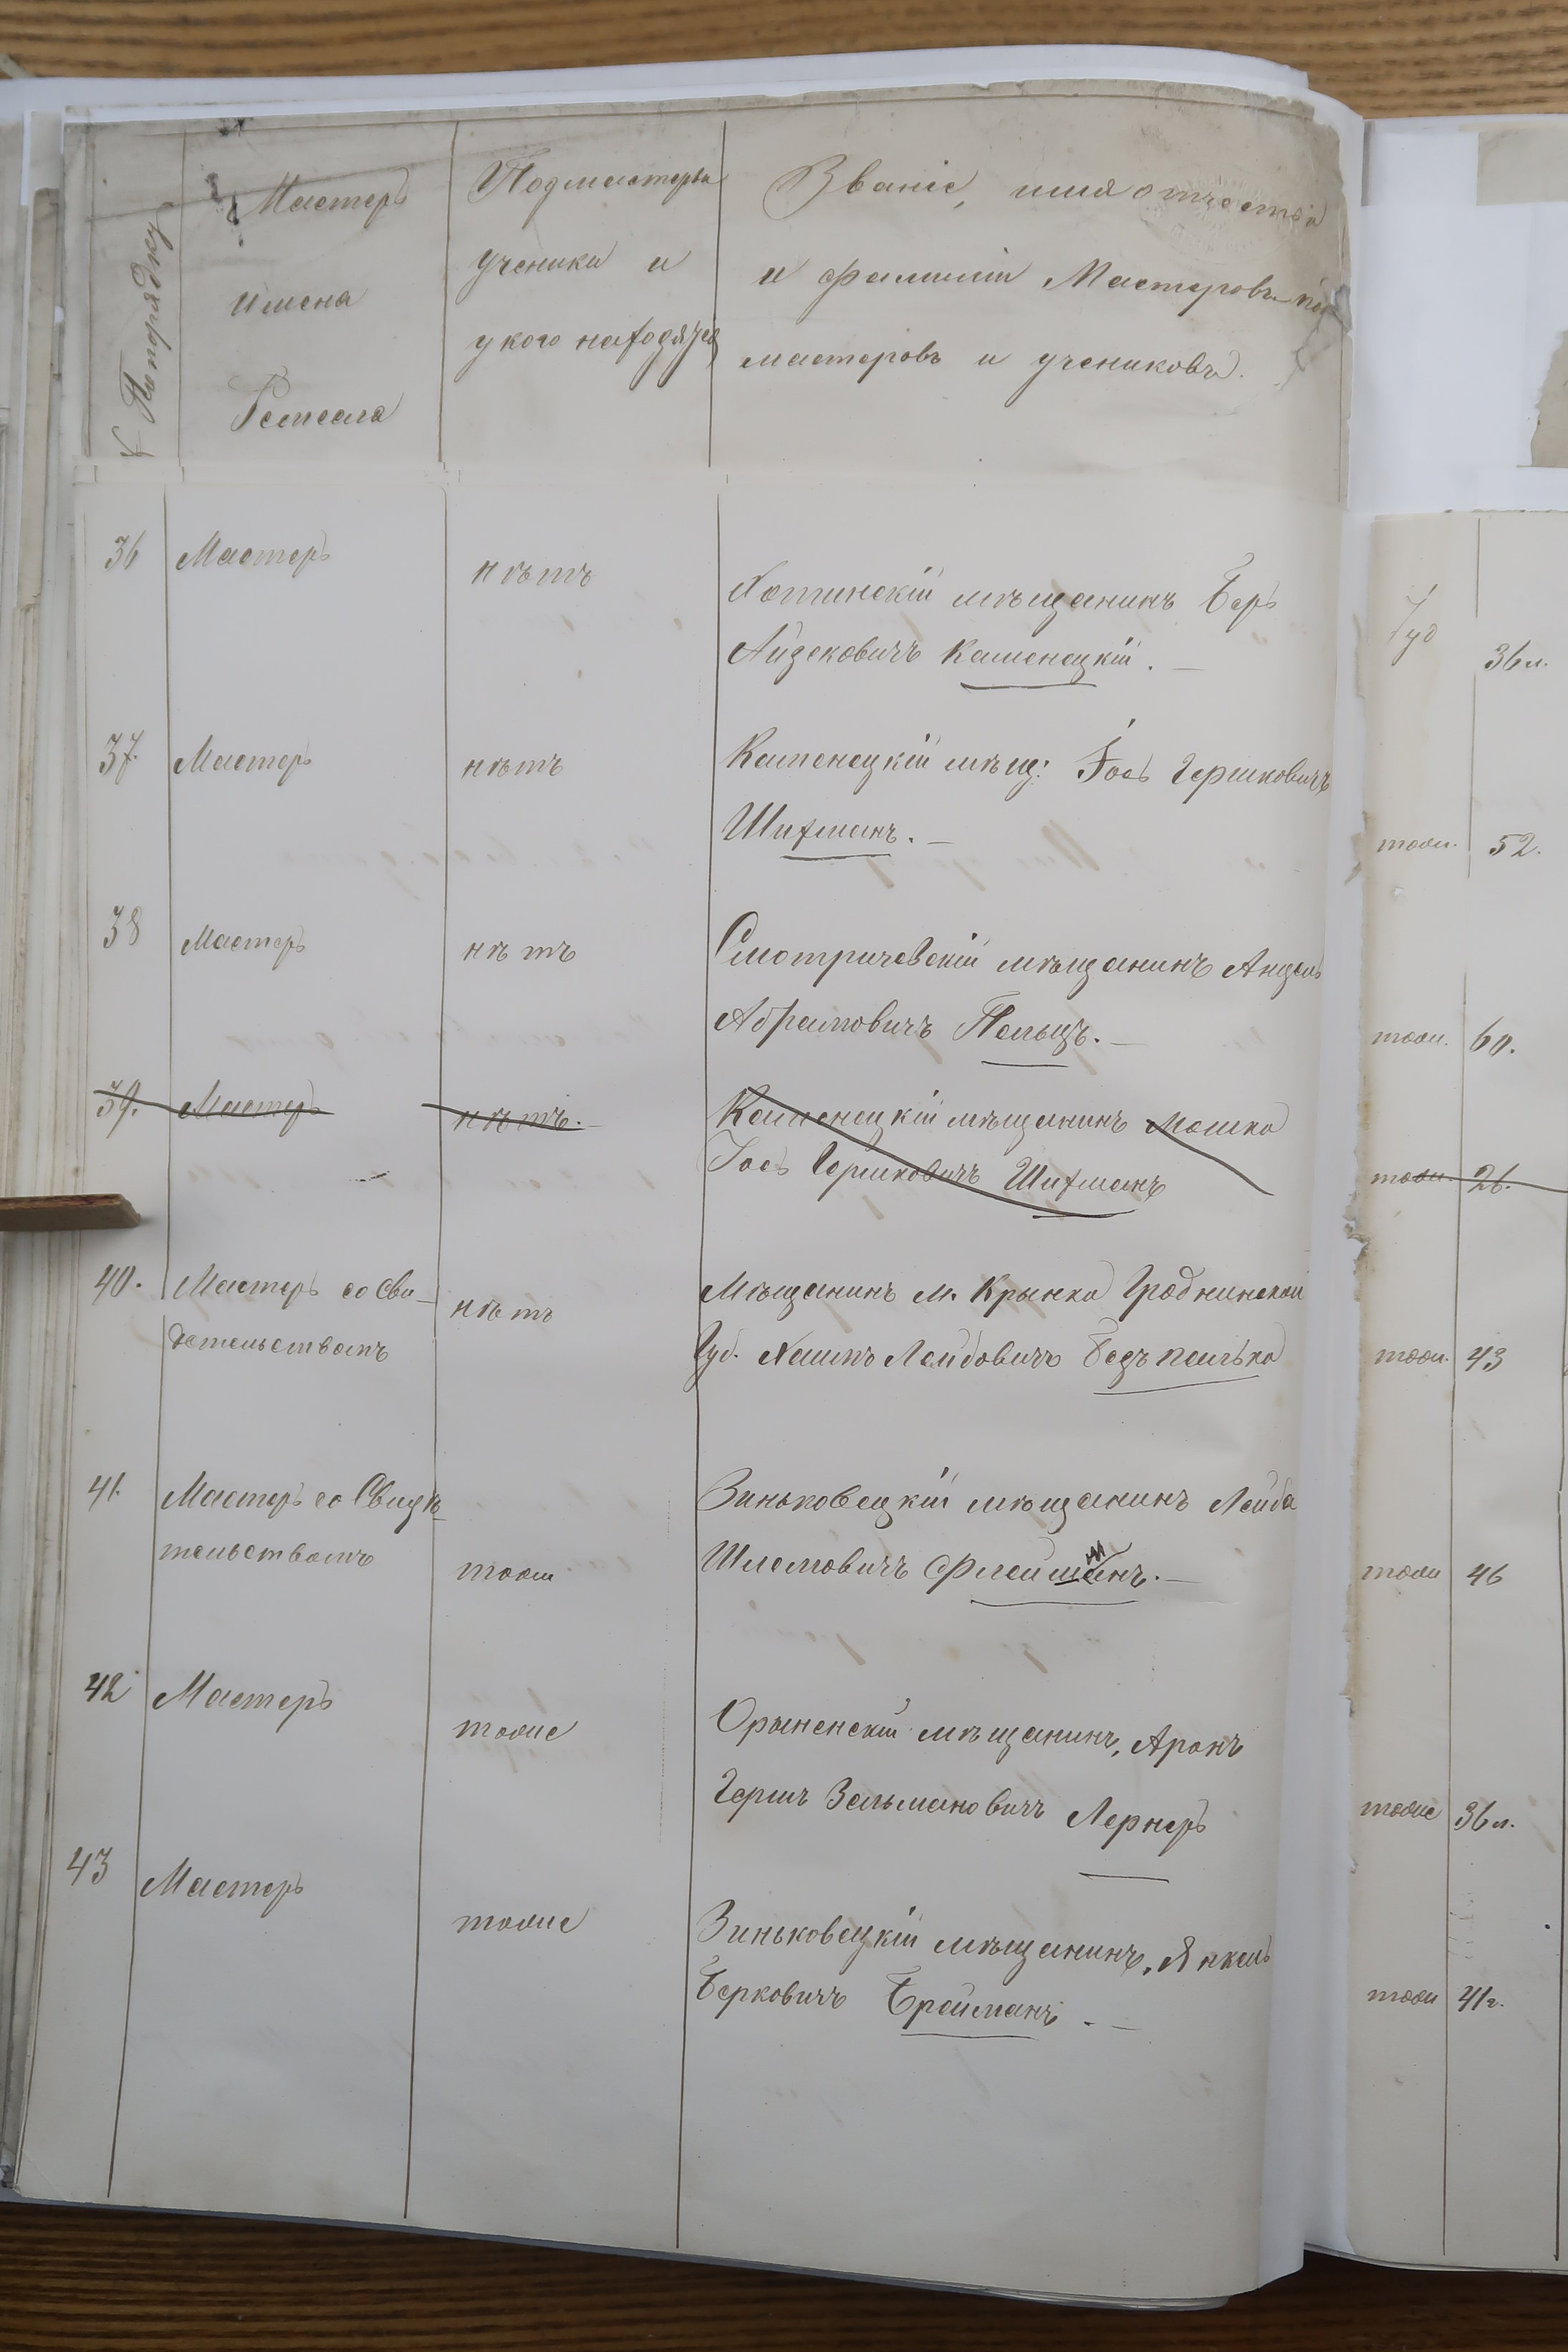 № Попорядку
Мастеръ
Имена
Ремесла
Подмастерья
ученики и
у кого находятся
Званіе, имя отчество
и фамиліи Мастеровъ под
мастеровъ и учениковъ.
36 Мастеръ нѣтъ Хотинскій мѣщанинъ Беръ
Айзековичъ Каменецкій. —
37. Мастеръ нѣтъ Каменецкій мѣщ: Іосъ Гершковичъ
Шихманъ. —
38 Мастеръ нѣтъ Смотричевскій мѣщанинъ Анцель
Абрамовичъ Пельцъ. —
39. Мастеръ нѣтъ. — Каменецкій мѣщанинъ Мошко
Іосъ Гершковичъ Шихманъ
40. Мастеръ со Сви-
детельствомъ нѣтъ Мѣщанинъ м. Крынка Гроднинской
Губ. Хаимъ Лейбовичъ
41. Мастеръ со Свидѣ-
тельствомъ тоже Зиньковецкій мѣщанинъ Лейба
Шлемовичъ Флейшманъ. —
42 Мастеръ тоже Орыненскій мѣщанинъ, Аронъ
Гершъ Зельмановичъ Лернеръ
43 Мастеръ тоже Зиньковецкій мѣщанинъ, Янкель
Берковичъ Бройманъ. —
Іуд 36 л.
тоже. 52.
тоже. 60.
тоже. 26.
тоже. 43
тоже 46
тоже 36 л.
тоже 41 г.